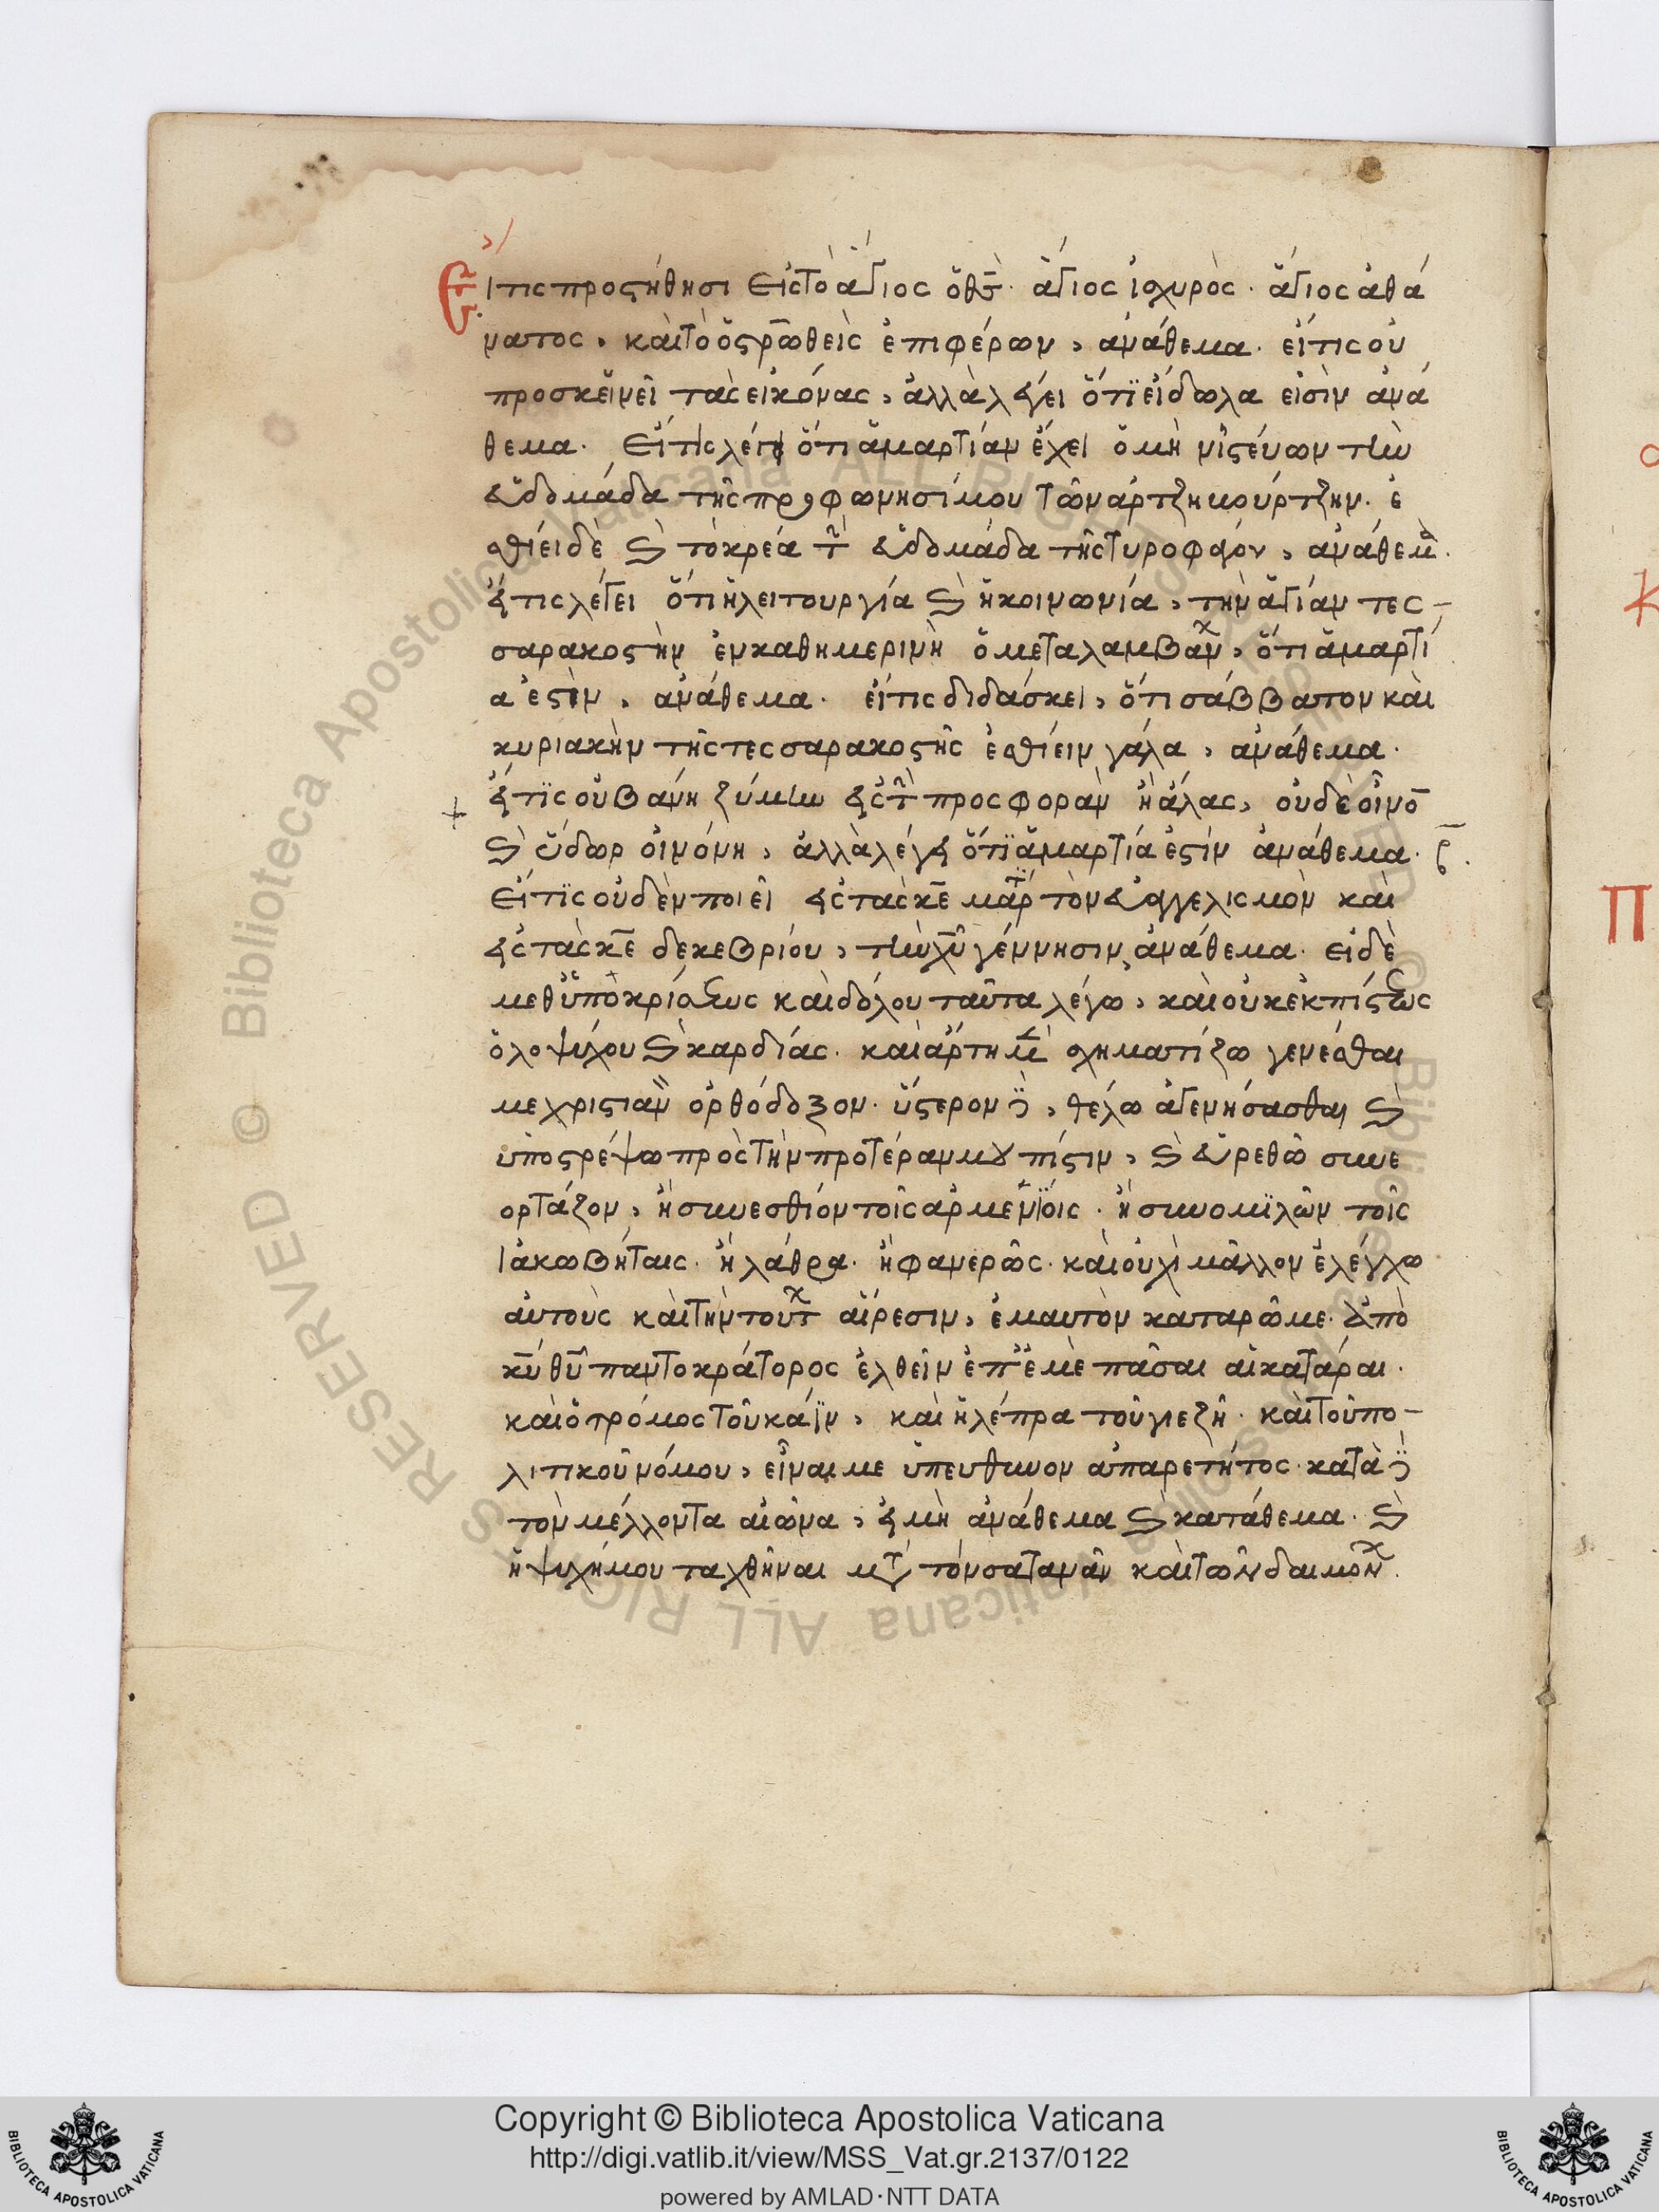 Εἴτις προςτήθησι εἰς τὸ ἅγιος ὁ θς̅. ἅγιος ἰσχυρὸς. ἅγιος ἀθά
νατος, καὶ τὸ ὁ στρω̅θεὶς ἐπιφέρων, ἀνάθεμα. εἴτις οὐ
προσκεῖνεῖ τὰς εἰκόνας, ἀλλὰ λέγει ὅτι εἴδωλα εἰσὶν ἀνά
θεμα. Εἴτις λέγει ὅτι ἁμαρτίαν ἔχει ὁ μὴ νιστεύων τὴν
ἑβδομάδα τῆς προφωνησίμου τῶν ἀρτζηκούρτζην. ἐ
σθίει δὲ καὶ τὸ κρέα τ̅ ἑβδομάδα τῆς τυροφάγου, ἀνάθεμα.
εἴτις λέγει ὅτι ἡ λειτουργία καὶ ἡ κοινωνία, τὴν ἁγίαν τες-
σαρακοστὴν ἐν καθημερινὴ ὁ μεταλαμβαν, ὅτι ἁμαρτί
α ἐστὶν, ἀνάθεμα. εἴτις διδάσκει, ὅτι σάββατον καὶ
κυριακὴν τῆς τεσσαρακοστῆς ἐσθίειν γάλα, ἀνάθεμα.
εἴτις οὐ βάνη ζύμην εἰς τ̅ προσφορὰν ἢ ἅλας, οὐδὲ οἶνο̅
καὶ ὕδωρ οἰνόνη, ἀλλὰ λέγει ὅτι ἁμαρτία ἐστίν ἀνάθεμα.
Εἴτις οὐδὲν ποιεῖ εἰς τὰς κε̅ μαρ τὸν εὐαγγελισμὸν καὶ
εἰς τὰς κε̅ δεκεβρίου, τὴν χυ̅ γέννησιν, ἀνάθεμα. εἰ δὲ
μεθ ὑποκρίσεως καὶ δόλου ταῦτα λέγω, καὶ οὐκ ἐκ πίστεως
ὁλοψύχου καὶ καρδίας. καὶ ἄρτη μὲ σχηματίζω γενέσθαι
με χριστιαν ὀρθόδοξον. ὕστερον, θέλω ἀγενήσασθαι καὶ
ὑποστρέψω πρὸς τὴν προτέραν μου πίστιν, καὶ εὑρεθῶ συνε
ορτάζον, ἢ συνεσθίον τοῖς ἀρμενίοις. ἢ συνομιλῶν τοῖς
Ἰακωβήταις. ἢ λάθρα. ἢ φανερῶς. καὶ οὐχὶ μᾶλλον ἐλέγχω
αὐτοὺς καὶ τὴν τουτ αἵρεσιν, ἐμαυτὸν καταρῶμε. ἀπὸ
κυ̅ θυ̅ παντοκράτορος ἐλθεῖν ἐπ ἐμὲ πᾶσαι αἱ κατάραι.
καὶ ὁ τρόμος τοῦ κάϊν, καὶ ἡ λέπρα τοῦ γιεζῆ. καὶ τοῦ πο-
λιτικοῦ νόμου, εἶναι με ὑπευθυνον ἀπαρετήτος. κατὰ
τὸν μέλλοντα αἰῶνα, εἰ μὴ ἀνάθεμα καὶ κατάθεμα. καὶ
ἡ ψυχή μου ταχθῆναι μετ τὸν σατανᾶν καὶ τῶν δαιμον.
Copyright © Biblioteca Apostolica Vaticana
http://digi.vatlib.it/view/MSS_Vat.gr.2137/0122
powered by AMLAD·NTT DATA
BIBLIOTECA APOSTOLICA VATICANA
BIBLIOTECA APOSTOLICA VATICANA